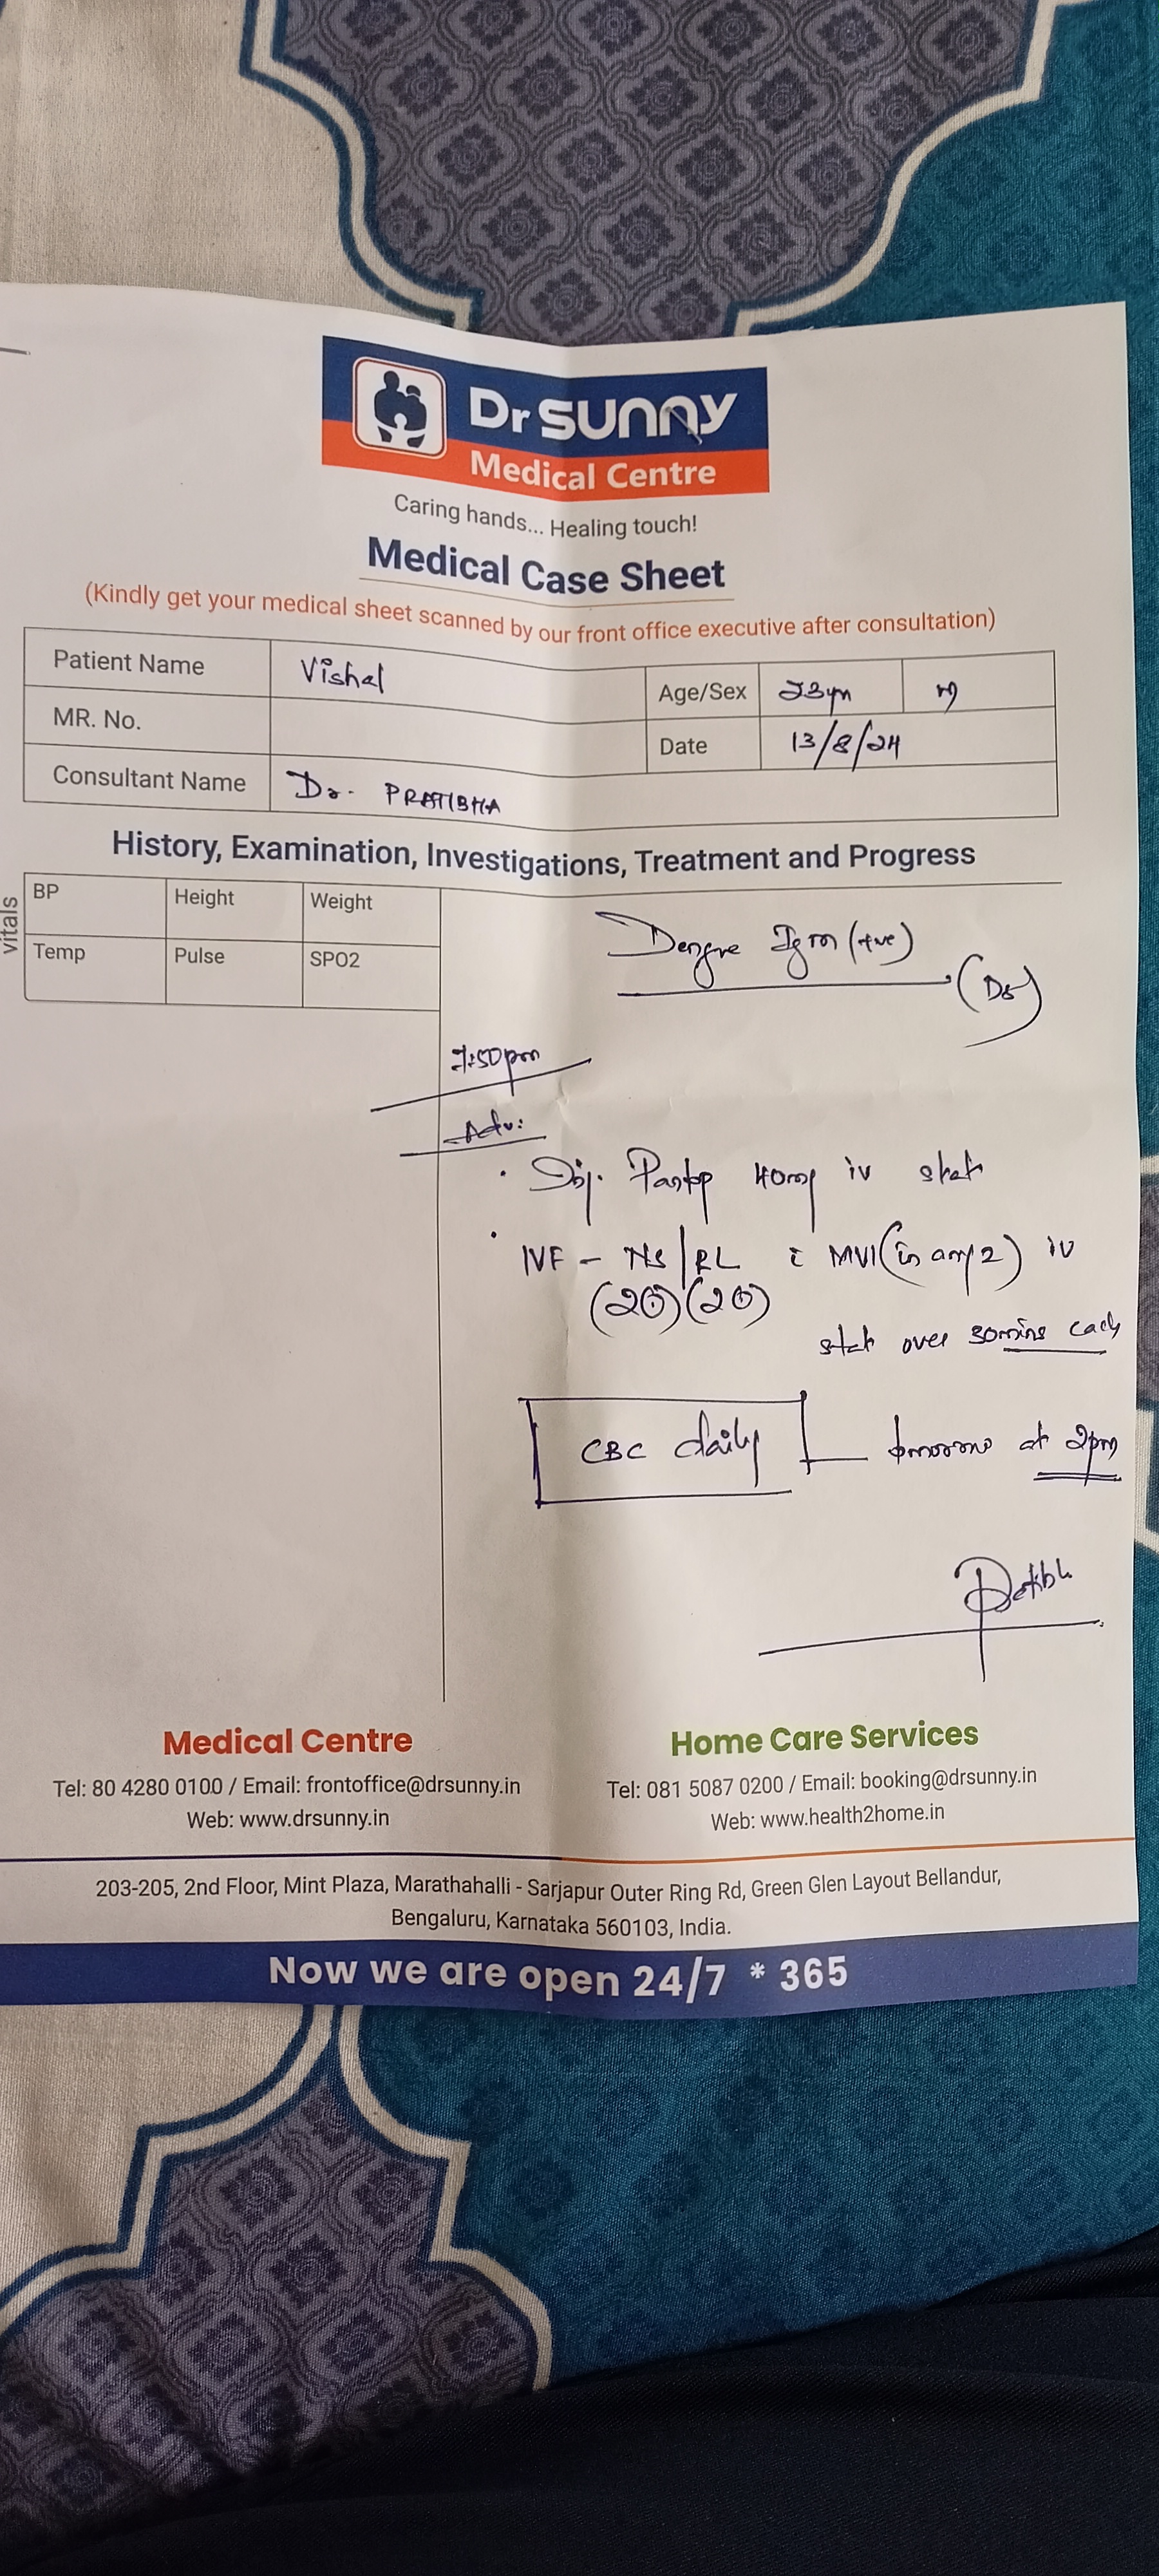 Dr SUNNY
Medical Centre
Caring hands... Healing touch!
Medical Case Sheet
(Kindly get your medical sheet scanned by our front office executive after consultation)
Patient Name Vishal Age/Sex 23yrs M
MR. No. Date 13/8/24
Consultant Name Dr. PRATIBHA
History, Examination, Investigations, Treatment and Progress
vitals
BP Height Weight
Temp Pulse SPO2
Dengue IgM (+ve)
(D5)
7:50pm
Adv:
• Inj. Pantop 40mg iv stat
• IVF - NS/RL c MVI (in any 2) iv
stat over 30mins each
CBC daily tomorrow at 2pm
Medical Centre
Tel: 80 4280 0100 / Email: frontoffice@drsunny.in
Web: www.drsunny.in
Home Care Services
Tel: 081 5087 0200 / Email: booking@drsunny.in
Web: www.health2home.in
203-205, 2nd Floor, Mint Plaza, Marathahalli - Sarjapur Outer Ring Rd, Green Glen Layout Bellandur,
Bengaluru, Karnataka 560103, India.
Now we are open 24/7 * 365